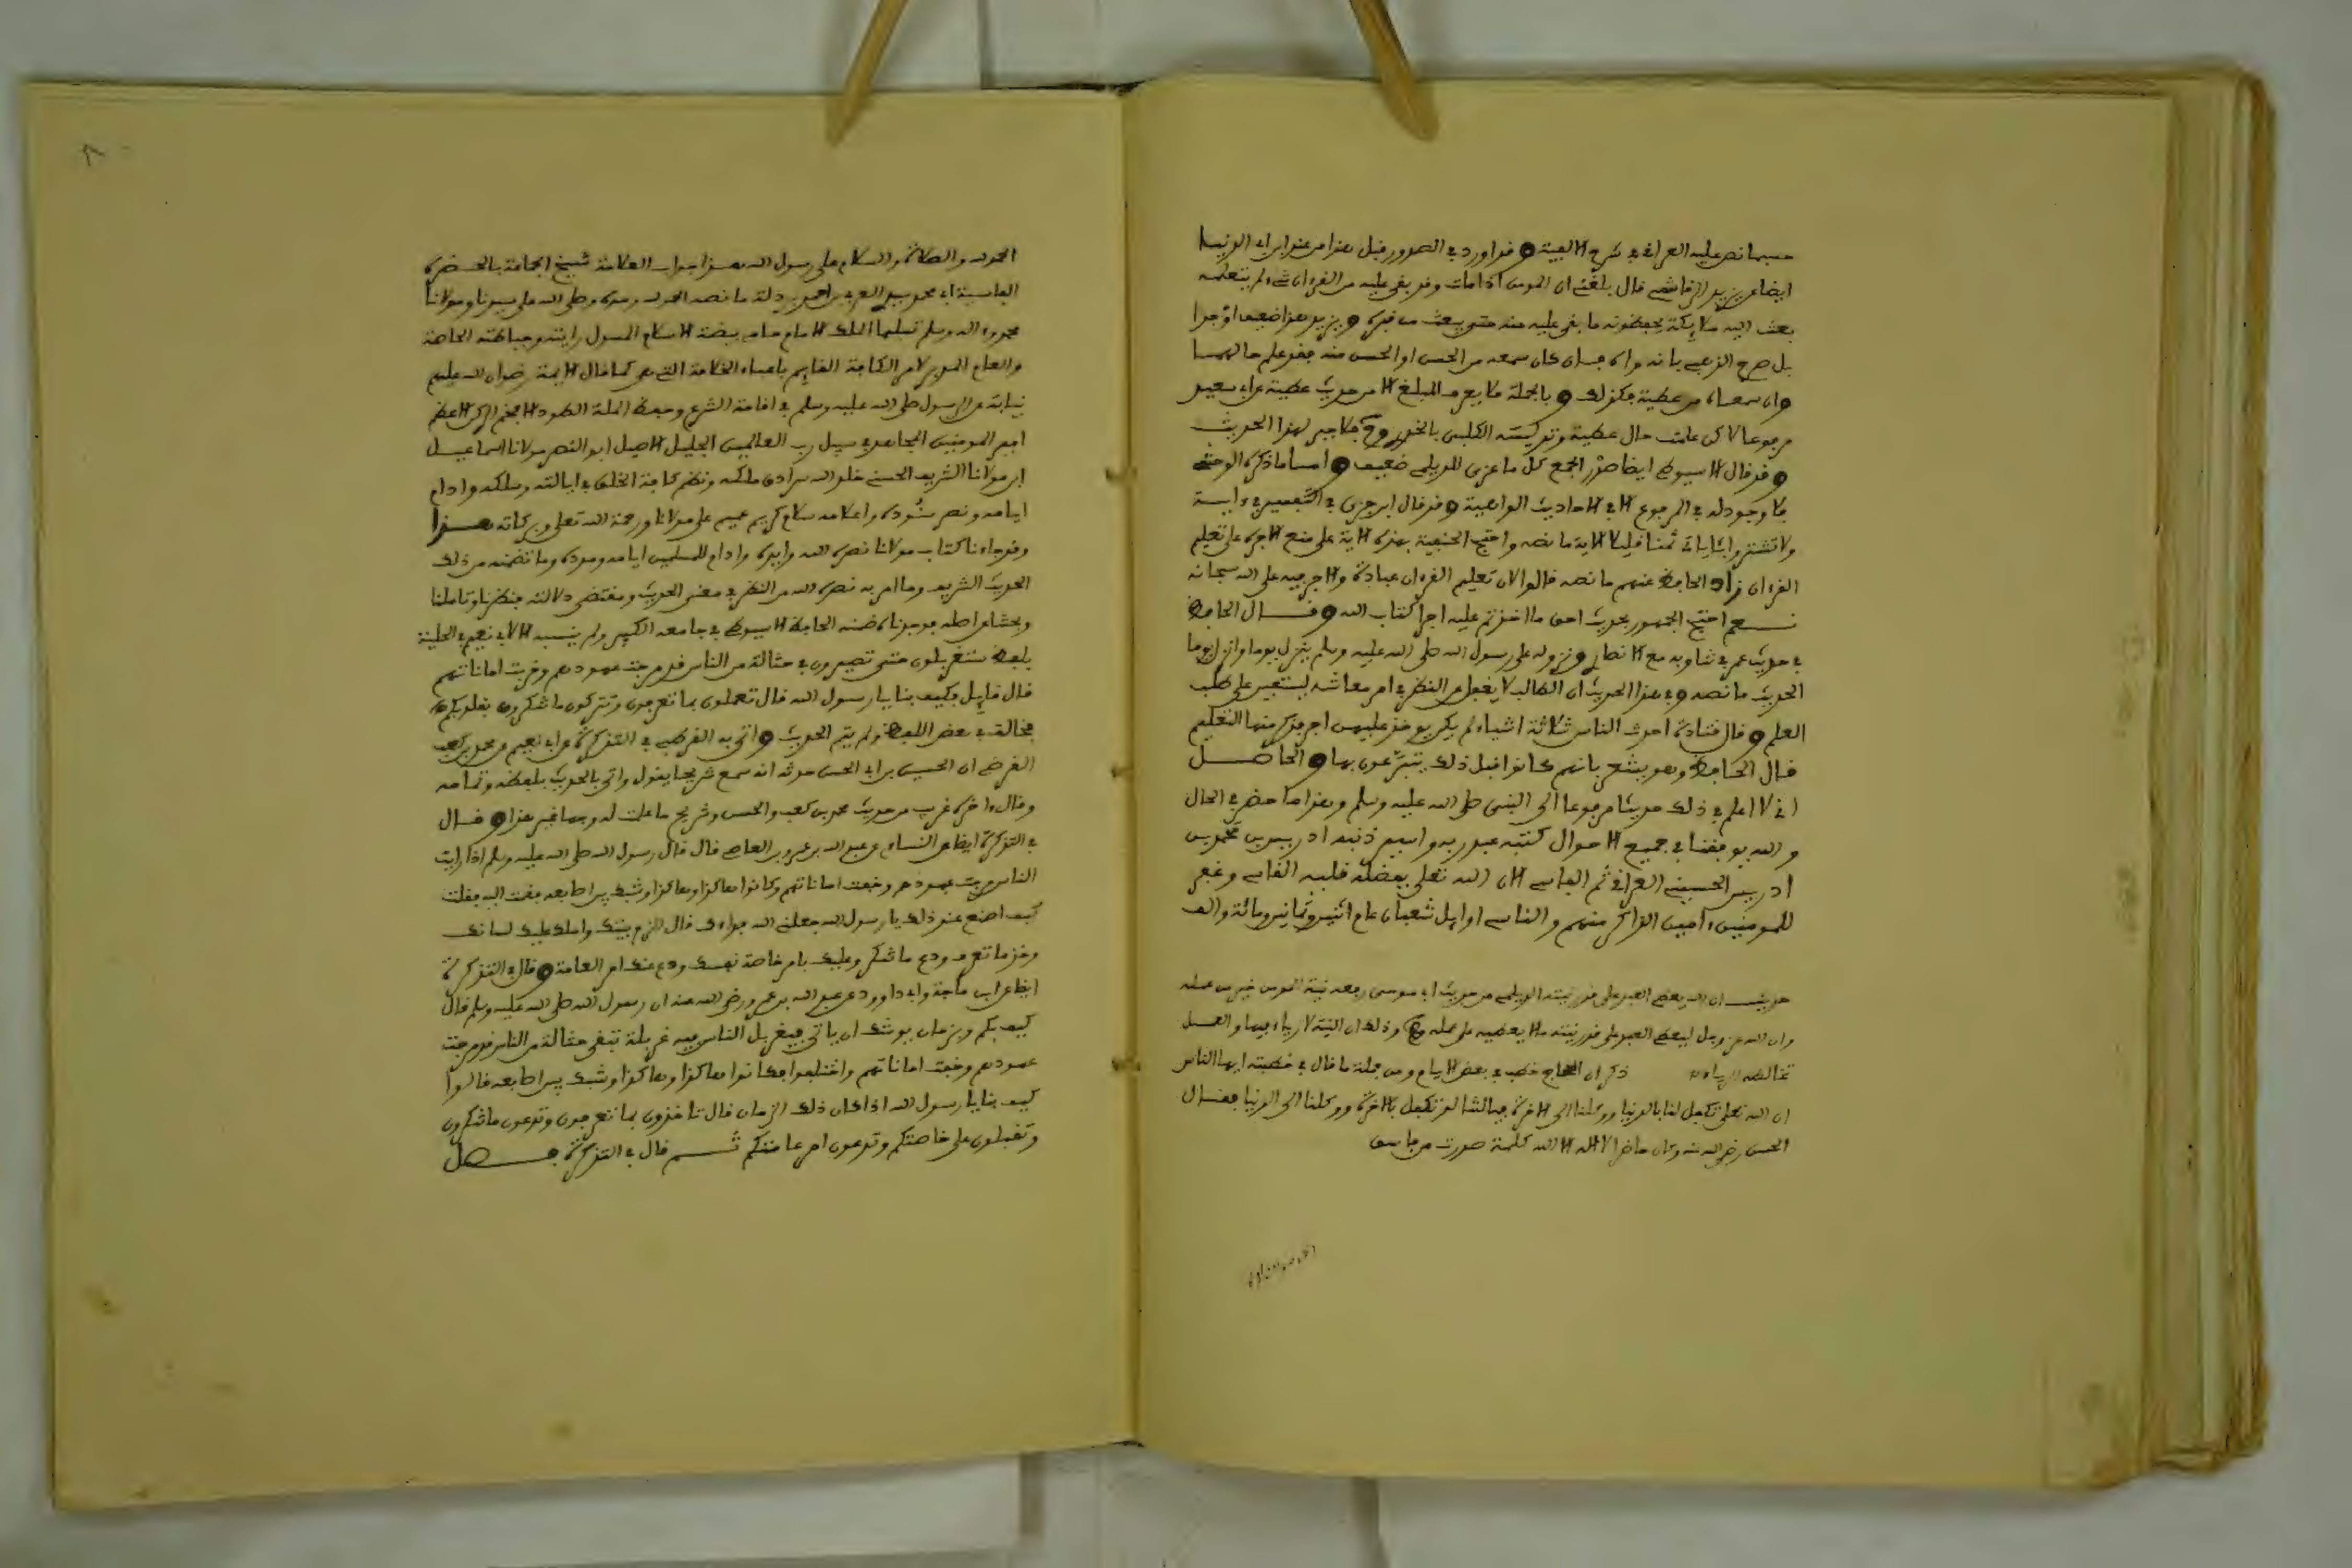 حسبما نص عليه العراقي في شرح الالفية وقد اورد في الصدور قبل هذا من عند ابن ابي الدنيا
ايضا عن يزيد الرقاشي قال بلغني ان المومن اذا مات وقد بقي عليه من القرءان شيء لم يتعلمه
بعث الله ملائكة يحفظونه ما بقي عليه منه حتى يبعث من قبره ويزيد هذا ضعيف جدا
بل صرح الذهبي بانه وابن حبان كان سمعه من الحسن او الحسن منه فقد علم حالهما
وان سمعاه من عطية فكذلك وبالجملة فلا يعرف المبلغ الا من حديث عطية عن ابي سعيد
مرفوعا لاكن علمت حال عطية وتوكيسته الكلبي بالخدري فلا جبر لهذا الحديث
وقد قال الاسيوطي ايضا صدر الجمع كل ما عزي للديلمي ضعيف واما ما ذكره الوحشي
فلا وجود له في المرفوع الا في الاحاديث الواهية وقد قال ابن جزي في التفسير في ءاية
ولا تشتروا بئاياتي ثمنا قليلا الاية ما نصه واحتج الحنفية بهذه الاية على منع الاجرة على تعليم
القرءان زاد الحافظ عنهم ما نصه قالوا لان تعليم القرءان عبادة والاجر فيه على الله سبحانه
نعم احتج الجمهور بحديث احق ما اخذتم عليه اجرا كتاب الله وقال الحافظ
في حديث عمر في تناوبه مع الانصاري ونزوله على رسول الله صلى الله عليه وسلم ينزل يوما وانزل يوما
الحديث ما نصه وفي هذا الحديث ان الطالب لا يغفل عن النظر في امر معاشه ليستعين على طلب
العلم وقال قتادة احدث الناس ثلاثة اشياء لم يكن يوخذ عليهن اجر فذكر منها التعليم
قال الحافظ وهو يشعر بانهم كانوا قبل ذلك يتبرعون بها والحاصل
اني لا اعلم في ذلك حديثا مرفوعا الى النبي صلى الله عليه وسلم وهذا ما حضر في الحال
والله يوفقنا في جميع الاحوال كتبه عبد ربه واسير ذنبه ادريس بن محمد بن
ادريس الحسيني العراقي ثم الفاسي الان الله تعلى بفضله قلبه القاسي وغفر
للمومنين ءامين الذاكر منهم والناسي اوايل شعبان عام اثنين وثمانين ومائة والف
حديث ان الله يعطي العبد على قدر نيته الديلمي من حديث ابي موسى رفعه نية المومن خير من عمله
وان الله عز وجل ليعطي العبد على قدر نيته ما لا يعطيه على عمله وذلك ان النية لا رياء فيها والعمل
تخالطه الرياء ذكر ان الحجاج خطب في بعض الايام ومن جملة ما قال في خطبته ايها الناس
ان الله تعلى تكفل لنا بالدنيا ووكلنا الى الاخرة فياليتنا لو تكفل بالاخرة ووكلنا الى الدنيا فقال
الحسن رضي الله عنه وكان حاضرا لا اله الا الله كلمة صدرت من فاسق
الحمد لله والصلاة والسلام على رسول الله هذا جواب العلامة شيخ الجماعة بالحضرة
الفاسية ابي محمد سيد العربي بن احمد بردلة ما نصه الحمد لله وحده وصلى الله على سيدنا ومولانا
محمد وءاله وسلم تسليما الملك الامام حامي بيضة الاسلام المسول رايته وحياطته الخاصة
والعام المدبر لامر الكافة القايم باعباء الخلافة التي هي كما قال الايمة رضوان الله عليهم
نيابة عن الرسول صلى الله عليه وسلم في اقامة الشرع وحفظ الملة الطود الافخم الركن الاعظم
امير المومنين المجاهد في سبيل رب العالمين الجليل الاصيل ابو النصر مولانا اسماعيل
ابن مولانا الشريف الحسني خلد الله مرادي ملكه ونظم كافة الخلق في ايالته وسلكه وادام
ايامه ونصر جنوده واعلامه سلام كريم عميم على مولانا ورحمة الله تعلى وبركاته هذا
وقد جاءنا كتاب مولانا نصره الله وايده وادام للمسلمين ايامه وجوده وما تضمنه من ذلك
الحديث الشريف وما امر به نصره الله من النظر في معنى الحديث ومقتضى دلالته فنظرنا وتاملنا
وبحثنا عن اصله فوجدناه ضمنه الحافظ الاسيوطي في جامعه الكبير ولم ينسبه الا لابي نعيم في الحلية
بلفظ ستغربلون حتى تصيرون في حثالة من الناس قد مرجت عهودهم وخربت اماناتهم
قال قايل فكيف بنا يا رسول الله قال تعملون بما تعرفون وتتركون ما تنكرون بقلوبكم
مخالفة في بعض اللفظ ولم يتم الحديث واتى به القرطبي في التذكرة عن ابي نعيم عن محمد بن كعب
القرظي ان الحسن بن ابي الحسن حدثه انه سمع شريحا يقول واتى بالحديث بلفظه وتمامه
وقال ءاخره غريب من حديث محمد بن كعب والحسن وشريح ما علمت له وجها غير هذا وقال
في التذكرة ايضا عن النساءي عن عبد الله بن عمرو بن العاصي قال قال رسول الله صلى الله عليه وسلم اذا رايت
الناس مرجت عهودهم وخفت اماناتهم وكانوا هاكذا وهاكذا وشبك بين اصابعه فقمت اليه فقلت
كيف اصنع عند ذلك يا رسول الله جعلني الله فداءك قال الزم بيتك واملك عليك لسانك
وخذ ما تعرف ودع ما تنكر وعليك بامر خاصة نفسك ودع عنك امر العامة وقال في التذكرة
ايضا عن ابن ماجة وابي داوود عن عبد الله بن عمرو رضي الله عنه ان رسول الله صلى الله عليه وسلم قال
كيف بكم وبزمان يوشك ان ياتي فيغربل الناس فيه غربلة تبقى حثالة من الناس قد مرجت
عهودهم وخفت اماناتهم واختلفوا فكانوا هاكذا وهاكذا وشبك بين اصابعه قالوا
كيف بنا يا رسول الله اذا كان ذلك الزمان قال تاخذون بما تعرفون وتدعون ما تنكرون
وتقبلون على خاصتكم وتدعون امر عامتكم ثم قال في التذكرة فصل